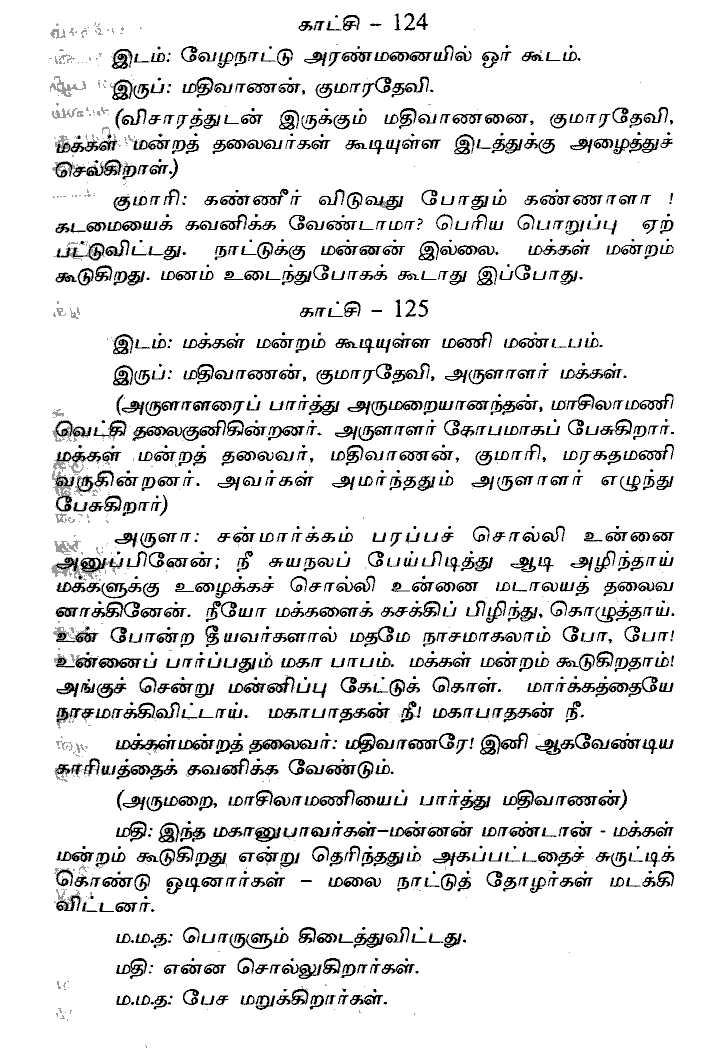 காட்சி – 124
இடம்: வேழநாட்டு அரண்மனையில் ஓர் கூடம்.
இருப்: மதிவாணன், குமாரதேவி.
(விசாரத்துடன் இருக்கும் மதிவாணனை, குமாரதேவி,
மக்கள் மன்றத் தலைவர்கள் கூடியுள்ள இடத்துக்கு அழைத்துச்
செல்கிறாள்.)
குமாரி: கண்ணீர் விடுவது போதும் கண்ணாளா !
கடமையைக் கவனிக்க வேண்டாமா? பெரிய பொறுப்பு ஏற்
பட்டுவிட்டது. நாட்டுக்கு மன்னன் இல்லை. மக்கள் மன்றம்
கூடுகிறது. மனம் உடைந்துபோகக் கூடாது இப்போது.
காட்சி – 125
இடம்: மக்கள் மன்றம் கூடியுள்ள மணி மண்டபம்.
இருப்: மதிவாணன், குமாரதேவி, அருளாளர் மக்கள்.
(அருளாளரைப் பார்த்து அருமறையானந்தன், மாசிலாமணி
வெட்கி தலைகுனிகின்றனர். அருளாளர் கோபமாகப் பேசுகிறார்.
மக்கள் மன்றத் தலைவர், மதிவாணன், குமாரி, மரகதமணி
வருகின்றனர். அவர்கள் அமர்ந்ததும் அருளாளர் எழுந்து
பேசுகிறார்)
அருளா: சன்மார்க்கம் பரப்பச் சொல்லி உன்னை
அனுப்பினேன்; நீ சுயநலப் பேய்பிடித்து ஆடி அழிந்தாய்
மக்களுக்கு உழைக்கச் சொல்லி உன்னை மடாலயத் தலைவ
னாக்கினேன். நீயோ மக்களைக் கசக்கிப் பிழிந்து, கொழுத்தாய்.
உன் போன்ற தீயவர்களால் மதமே நாசமாகலாம் போ, போ!
உன்னைப் பார்ப்பதும் மகா பாபம். மக்கள் மன்றம் கூடுகிறதாம்!
அங்குச் சென்று மன்னிப்பு கேட்டுக் கொள். மார்க்கத்தையே
நாசமாக்கிவிட்டாய். மகாபாதகன் நீ! மகாபாதகன் நீ.
மக்கள்மன்றத் தலைவர்: மதிவாணரே! இனி ஆகவேண்டிய
காரியத்தைக் கவனிக்க வேண்டும்.
(அருமறை, மாசிலாமணியைப் பார்த்து மதிவாணன்)
மதி: இந்த மகானுபாவர்கள்–மன்னன் மாண்டான் - மக்கள்
மன்றம் கூடுகிறது என்று தெரிந்ததும் அகப்பட்டதைச் சுருட்டிக்
கொண்டு ஓடினார்கள் – மலை நாட்டுத் தோழர்கள் மடக்கி
விட்டனர்.
ம.ம.த: பொருளும் கிடைத்துவிட்டது.
மதி: என்ன சொல்லுகிறார்கள்.
ம.ம.த: பேச மறுக்கிறார்கள்.